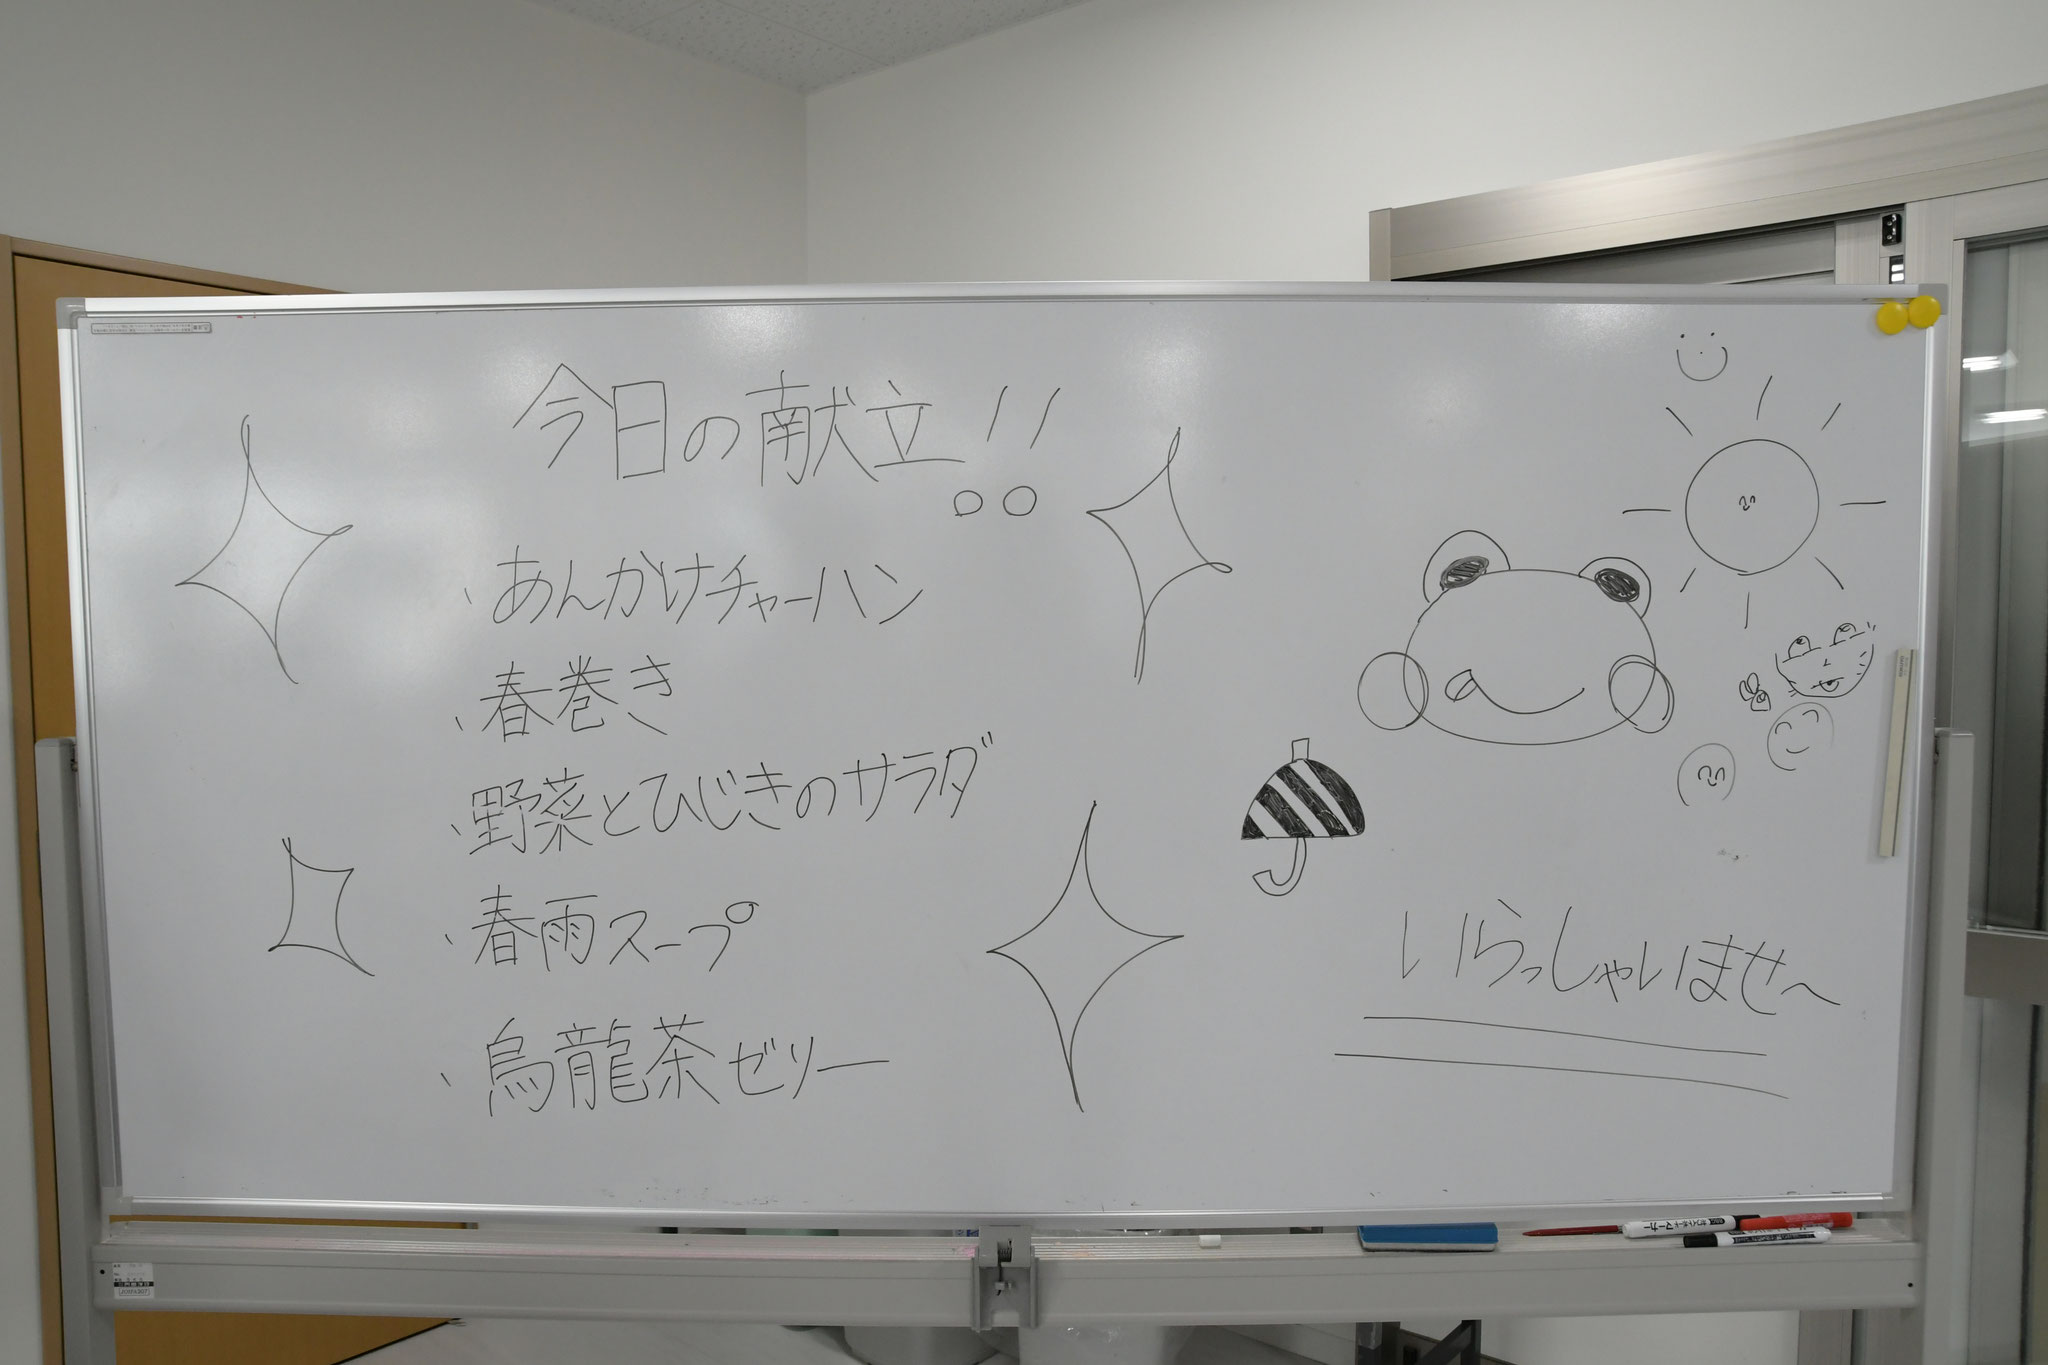 今日の献立!!
・あんかけチャーハン
・春巻き
・野菜とひじきのサラダ
・春雨スープ
・烏龍茶ゼリー
いらっしゃいませ〜